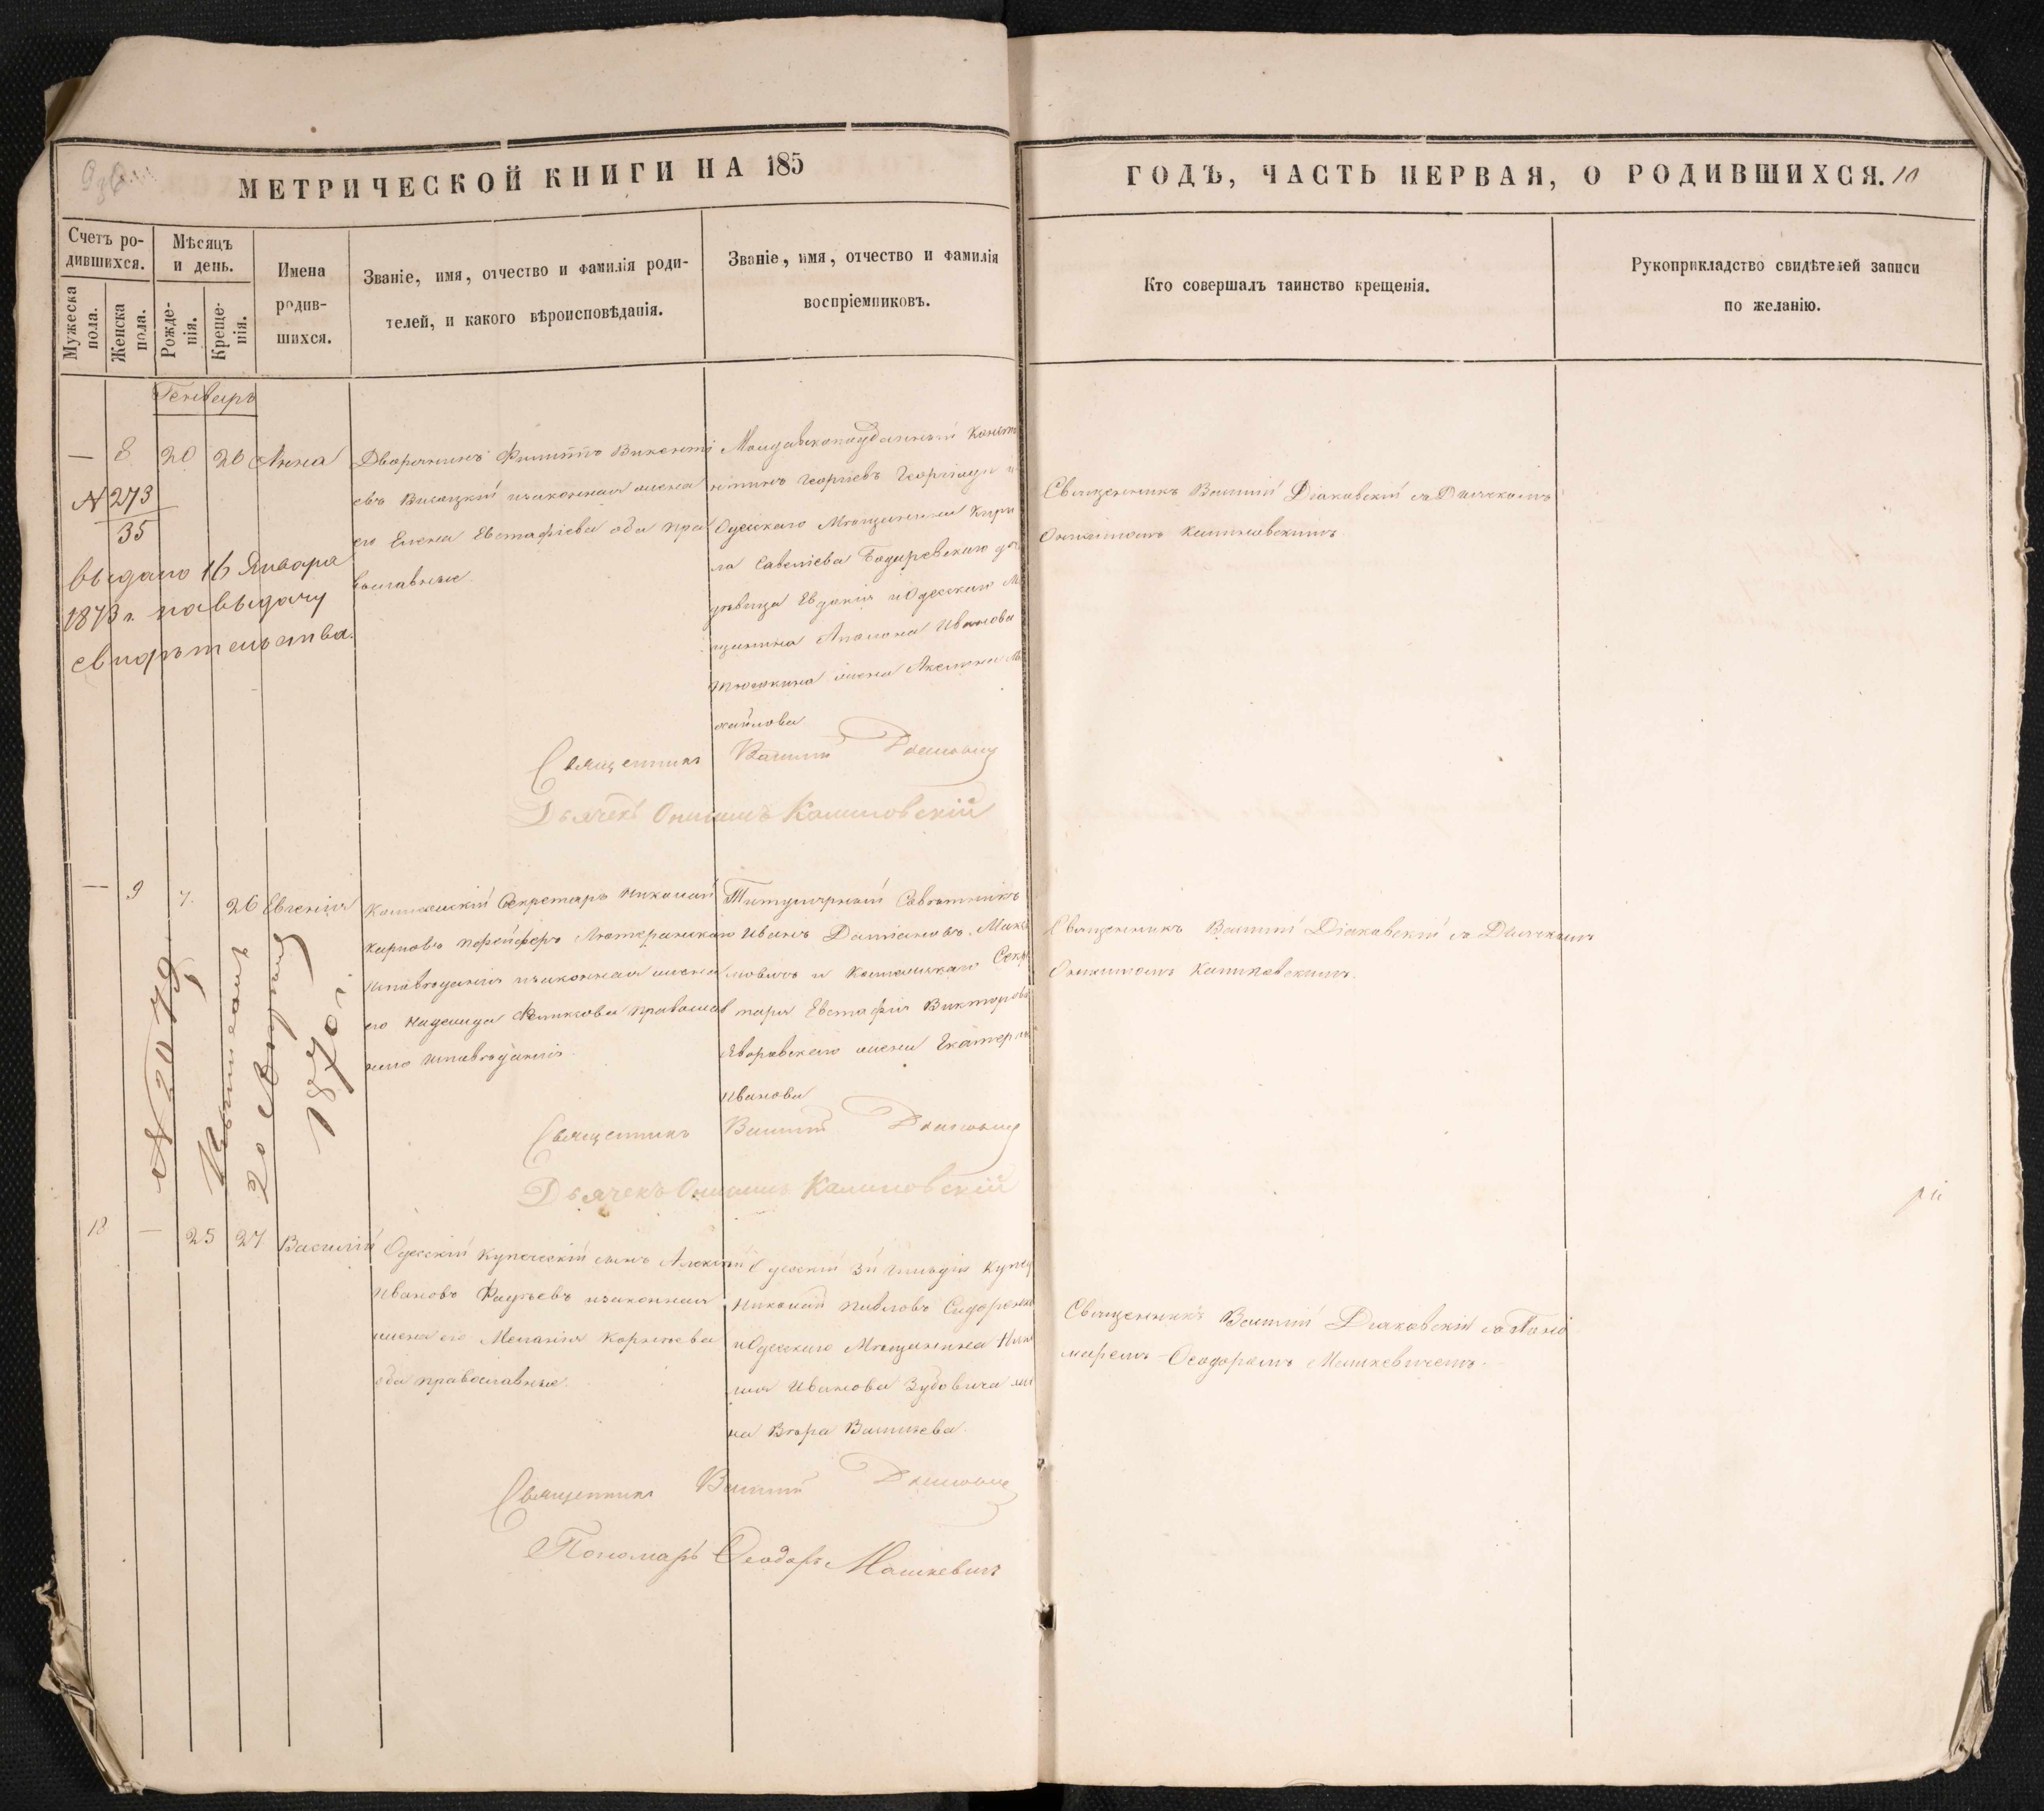 МЕТРИЧЕСКОЙ КНИГИ НА 185
ГОДЪ, ЧАСТЬ ПЕРВАЯ, О РОДИВШИХСЯ. 10
Счетъ ро-
дившихся.
Мужеска
пола.
Женска
пола.
Мѣсяцъ
и день.
Рожде-
нія.
Креще-
нія.
Имена
родив-
шихся.
Званіе, имя, отчество и фамилія роди-
телей, и какого вѣроисповѣданія.
Званіе, имя, отчество и фамилія
воспріемниковъ.
Кто совершалъ таинство крещенія.
Рукоприкладство свидѣтелей записи
по желанію.
Генварь
— 8 20 26 Анна
N 273
35
выдано 16 Января
1873 г. на выдачу
свидѣтельства.
Дворянинъ Филиппъ Викенті
евъ Висоцкій и законная жена
его Елена Евстафіева оба пра
вославные.
Молдавскоподданный Конст
нтинъ Георгіевъ Георгіади и
Одесскаго Мѣщанина Кири
ла Савеліева Бодаревскаго до
дѣвица Евдокія и Одесскаго М
щанина Иванова
жена Акелина М
хайлова
Священникъ Василій Діаковскій
Дьячекъ Онисимъ Калиновскій
Священникъ Василій Діаковскій съ Дьячкомъ
Онисимомъ Калиновскимъ.
— 9 7. 26 Евгенія
N 2079
20
1870 г.
Коллежскій Секретарь Николай
Карловъ Лютеранскаго
исповѣданія и законная жена
его Надежда Феликсова православ
наго исповѣданія.
Титулярный Совѣтникъ
Иванъ Даміановъ
и Коллежскаго Секре
таря Евстафія Викторова
Яворовскаго жена Екатерина
Иванова
Священникъ Василій Діаковскій
Дьячекъ Онисимъ Калиновскій
Священникъ Василій Діаковскій съ Дьячкомъ
Онисимомъ Калиновскимъ.
18 — 25 27 Василій
Одесскій купеческій сынъ Алексѣй
Ивановъ и законная
жена его Меланія Корнѣева
оба православные.
Одесскій 3й Гильдіи Купец
Николай Павловъ Сидоренко
и Одесскаго Мѣщанина
Иванова Зубовича же
на Вѣра Васильева.
Священникъ Василій Діаковскій
Пономарь Ѳеодоръ Машкевичъ
Священникъ Василій Діаковскій съ Поно
маремъ Ѳеодоромъ Машкевичемъ.